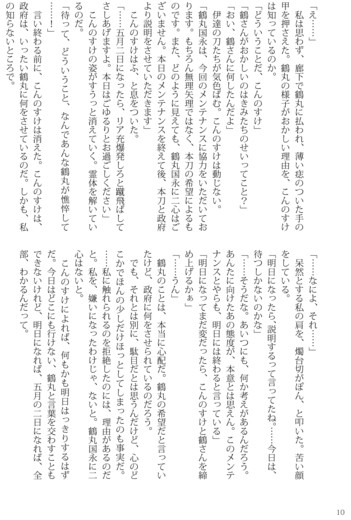 「え……」
　私は思わず、廊下で鶴丸に払われ、薄い痣のついた手の
甲を押さえた。鶴丸の様子がおかしい理由を、こんのすけ
は知っているのか。
「どういうことだ、こんのすけ」
「おい、鶴さんに何したんだよ」
「鶴さんがおかしいのはきみたちのせいってこと？」
　伊達の刀たちが気色ばむ。こんのすけは動じない。
「鶴丸国永は、今回のメンテナンスに協力をいただいてお
ります。もちろん無理矢理ではなく、本刀の希望によるも
のです。また、どのように見えても、鶴丸国永に二心はご
ざいません。本日のメンテナンスを終えて後、本刀と政府
より説明をさせていただきます」
　こんのすけは、ふ、と息をついた。
「……五月二日になったら、リア充爆発しろと蹴飛ばして
さしあげますよ。本日はごゆるりとお過ごしください」
　こんのすけの姿がすうっと消えていく。霊体を解いてい
るのだ。
「待って、どういうこと、なんであんな鶴丸が憔悴して
……！」
　言い終わる前に、こんのすけは消えた。こんのすけは、
政府は、いったい鶴丸に何をさせているのだ。しかも、私
の知らないところで。
「……なによ、それ……」
　呆然とする私の肩を、燭台切がぽん、と叩いた。苦い顔
をしている。
「明日になったら、説明するって言ってたね。……今日は、
待つしかないのかな」
「……そうだな。あいつにも、何か考えがあるんだろう。
あんたに向けたあの態度が、本意とは思えん。このメンテ
ナンスとやらも、明日には終わると言っている」
「明日になってまだ変だったら、こんのすけと鶴さんを締
め上げるかぁ」
「……うん」
　鶴丸のことは、本当に心配だ。鶴丸の希望だと言ってい
たけど、政府に何をさせられているのだろう。
　でも、それとは別に、駄目だとは思うんだけど、心のど
こかでほんの少しだけほっとしてしまったのも事実だ。
　……私に触れられるのを拒絶したのには、理由があるのだ
と。私を、嫌いになったわけじゃ、ないと。鶴丸国永に二
心はないと。
　こんのすけによれば、何もかも明日はっきりするはず
だ。今日はどこにも行けない、鶴丸と言葉を交わすことも
できないけれど、明日になれば、五月の二日になれば、全
部、わかるんだって。
10